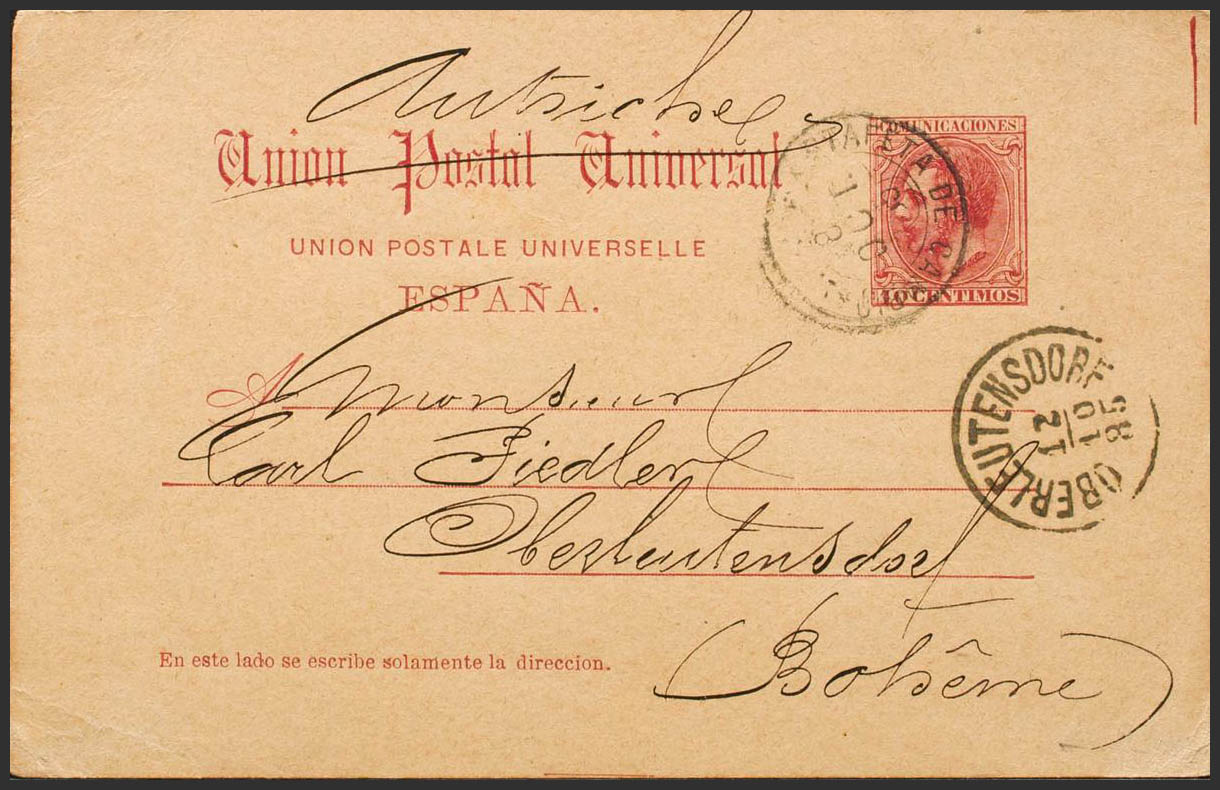 Autriche
Union Postal Universal
UNION POSTALE UNIVERSELLE
ESPAÑA.
COMUNICACIONES
10 CENTIMOS
ESTAFETA DE
OCT
OBERLEUTENSDORF
12
10
85
A Monsieur
Carl Fiedler
Oberleutensdorf
Bohême
En este lado se escribe solamente la direccion.